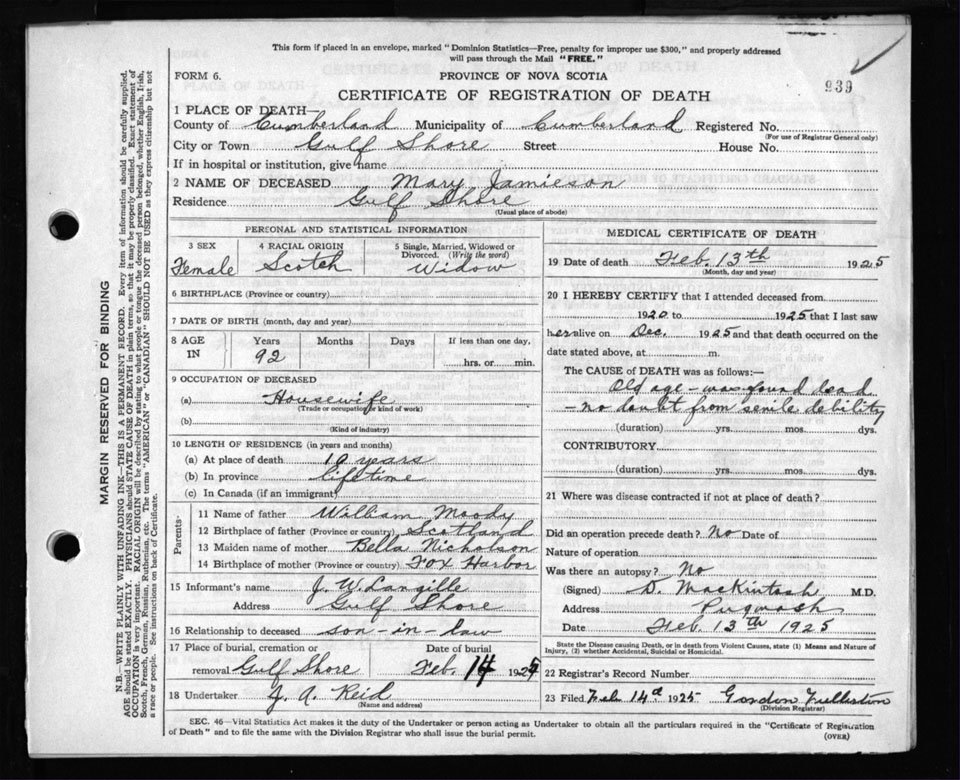 This form if placed in an envelope, marked "Dominion Statistics—Free, penalty for improper use $300," and properly addressed
will pass through the Mail "FREE."
FORM 6.
PROVINCE OF NOVA SCOTIA
939
CERTIFICATE OF REGISTRATION OF DEATH
1 PLACE OF DEATH—
County of Cumberland Municipality of Cumberland Registered No.
(For use of Registrar General only)
City or Town Gulf Shore Street House No.
If in hospital or institution, give name
2 NAME OF DECEASED Mary Jamieson
Residence Gulf Shore
(Usual place of abode)
PERSONAL AND STATISTICAL INFORMATION
3 SEX 4 RACIAL ORIGIN 5 Single, Married, Widowed or
Divorced. (Write the word)
Female Scotch Widow
6 BIRTHPLACE (Province or country)
7 DATE OF BIRTH (month, day and year)
8 AGE Years Months Days If less than one day,
IN 92 hrs. or min.
9 OCCUPATION OF DECEASED
(a) Housewife
(Trade or occupation or kind of work)
(b)
(Kind of industry)
10 LENGTH OF RESIDENCE (in years and months)
(a) At place of death 19 years
(b) In province lifetime
(c) In Canada (if an immigrant)
Parents
11 Name of father William Moody
12 Birthplace of father (Province or country) Scotland
13 Maiden name of mother Bella Nicholson
14 Birthplace of mother (Province or country) Fox Harbor
15 Informant's name J. W. Langille
Address Gulf Shore
16 Relationship to deceased son-in-law
17 Place of burial, cremation or Date of burial
removal Gulf Shore Feb. 14 1925
18 Undertaker J. A. Reid
(Name and address)
MEDICAL CERTIFICATE OF DEATH
19 Date of death Feb. 13th 1925
(Month, day and year)
20 I HEREBY CERTIFY that I attended deceased from
1920 to 1925 that I last saw
her alive on Dec. 1925 and that death occurred on the
date stated above, at m.
The CAUSE of DEATH was as follows:—
Old age - was found dead
- no doubt from senile debility
(duration) yrs. mos. dys.
CONTRIBUTORY
(duration) yrs. mos. dys.
21 Where was disease contracted if not at place of death?
Did an operation precede death? No Date of
Nature of operation
Was there an autopsy? No
(Signed) D. Mackintosh M.D.
Address Pugwash
Date Feb. 13th 1925
State the Disease causing Death, or in death from Violent Causes, state (1) Means and Nature of
Injury, (2) whether Accidental, Suicidal or Homicidal.
22 Registrar's Record Number
23 Filed Feb 14th 1925 Gordon
(Division Registrar)
SEC. 46—Vital Statistics Act makes it the duty of the Undertaker or person acting as Undertaker to obtain all the particulars required in the "Certificate of Registration
of Death" and to file the same with the Division Registrar who shall issue the burial permit.
(OVER)
MARGIN RESERVED FOR BINDING
N.B.—WRITE PLAINLY WITH UNFADING INK—THIS IS A PERMANENT RECORD. Every item of information should be carefully supplied.
AGE should be stated EXACTLY. PHYSICIANS should STATE CAUSE OF DEATH in plain terms, so that it may be properly classified. Exact statement of
OCCUPATION is very important. RACIAL ORIGIN will be described by stating to what people or tongue the deceased person belonged, whether English, Irish,
Scotch, French, German, Russian, Ruthenian, etc. The terms "AMERICAN" or "CANADIAN" SHOULD NOT BE USED as they express citizenship but not
a race or people. See instructions on back of Certificate.